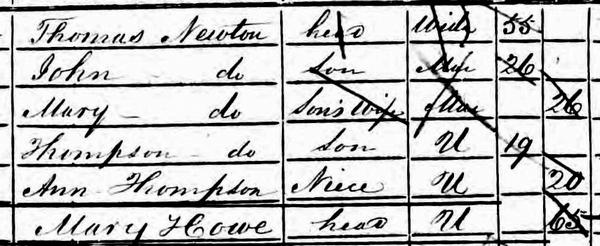 Thomas Newton head Widr 55
John do son Mar 26
Mary do Son's Wife Mar 26
Thompson do son U 19
Ann Thompson Niece U 20
Mary Howe head U 65